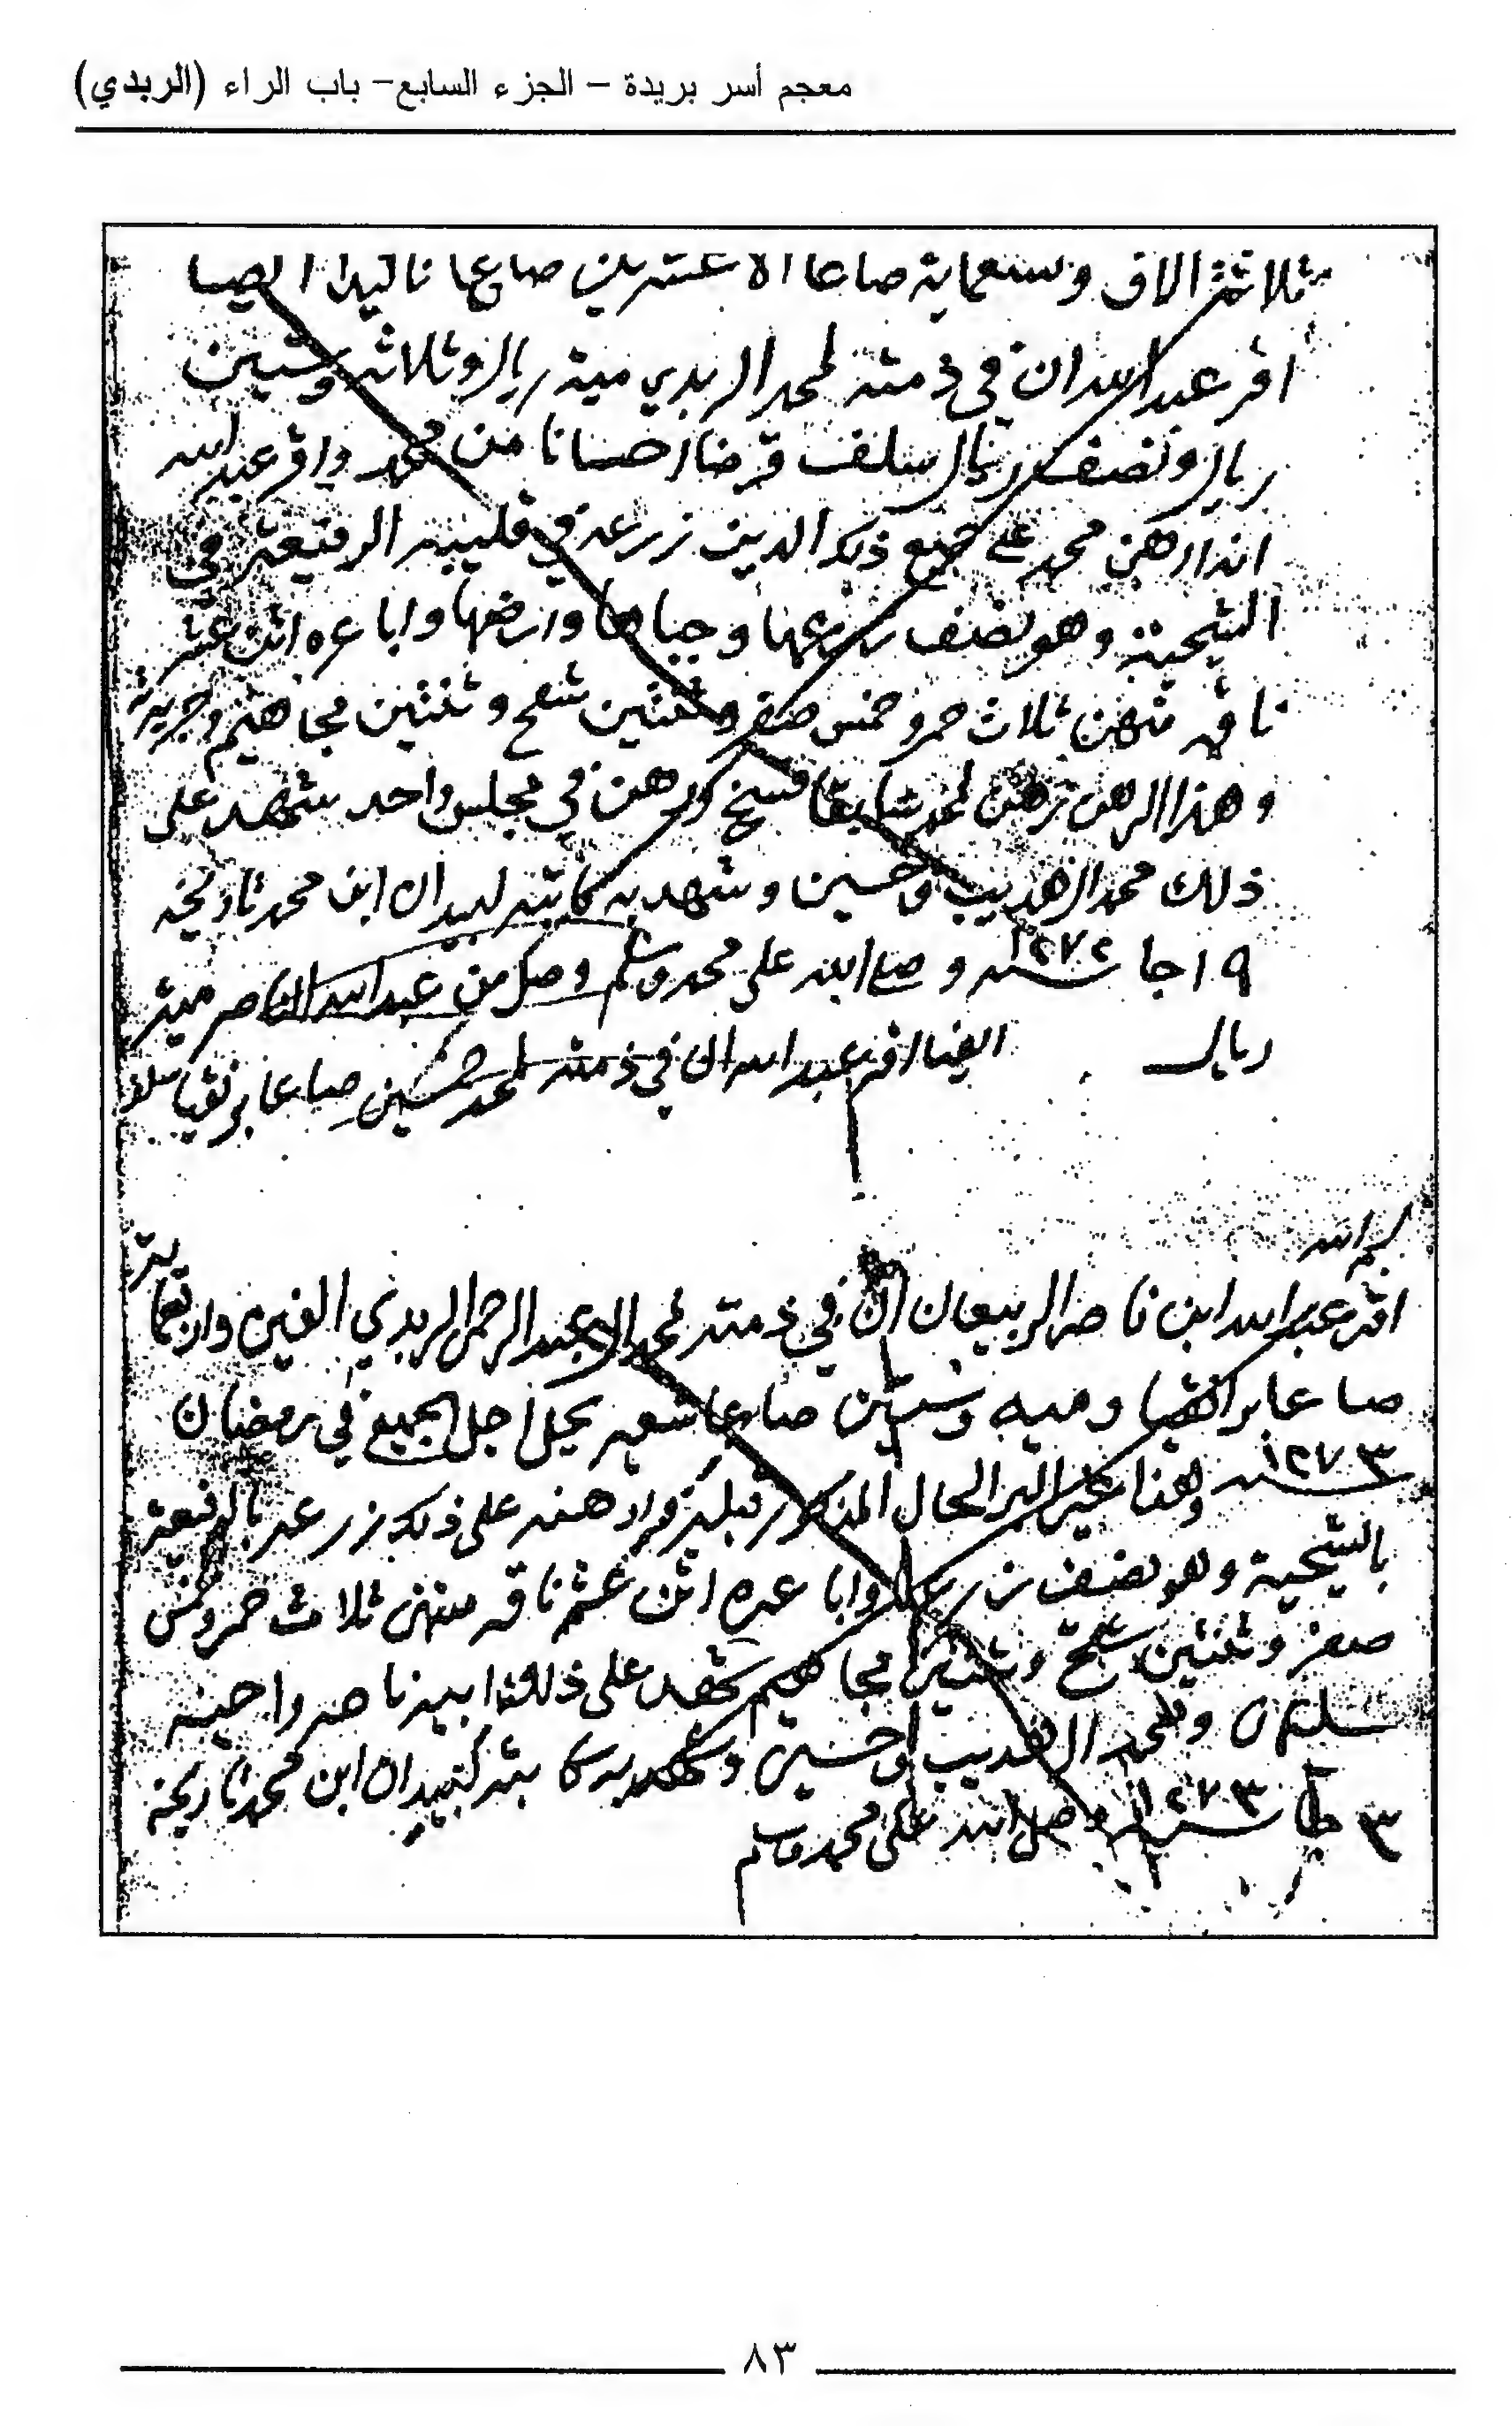 معجم أسر بريدة – الجزء السابع– باب الراء (الربدي)
ثلاثة الاف وسبعماية صاعا الا عشرين صاع ايضا
اقر عبد الله ان في ذمته لمحمد الربدي مية ريال وثلاثه وستين
ريال ونصف ريال سلف قرضا احسانا من محمد واقر عبد الله
انه ارهن محمد على جميع ذلك الدين زرعه في قليبه الرفيعة في
الشيحية وهو نصف زرعها وجباها وارضها واباعره اثن عشر
ناقه منهن ثلاث حمر وخمس صفر وثنتين شقح وثنتين مجاهيم وجريرته
وهذا الرهن رهن لمحمد سابقا فسخ ورهن في مجلس واحد شهد على
ذلك محمد الهديب وحسين وشهد به كاتبه لبيدان ابن محمد تاريخه
١٩ جا سنة ١٢٧٢ وصلى الله على محمد وسلم وصل من عبد الله الناصر مية
ريال ايضا اقر عبد الله ان في ذمته لمحمد خمسين صاعا بر نقيا سلف
بسم الله
اقر عبد الله ابن ناصر الربيعان ان في ذمته لمحمد ال عبد الرحمن الربدي الفين واربعماية
صاعا بر نقيا ومية وستين صاعا شعير يحل اجل الجميع في رمضان
سنة ١٢٧٣ وهذا غير الحال المذكور قبله وارهنه على ذلك زرعه بالرفيعة
بالشيحية وهو نصف زرعها واباعره اثن عشر ناقه منهن ثلاث حمر وخمس
صفر وثنتين شقح وثنتين مجاهيم شهد على ذلك ابيه ناصر واخيه
سليمان ومحمد الهديب وحسين وشهد به كاتبه لبيدان ابن محمد تاريخه
٣ سنة ١٢٧٣ وصلى الله على محمد وسلم
٨٣